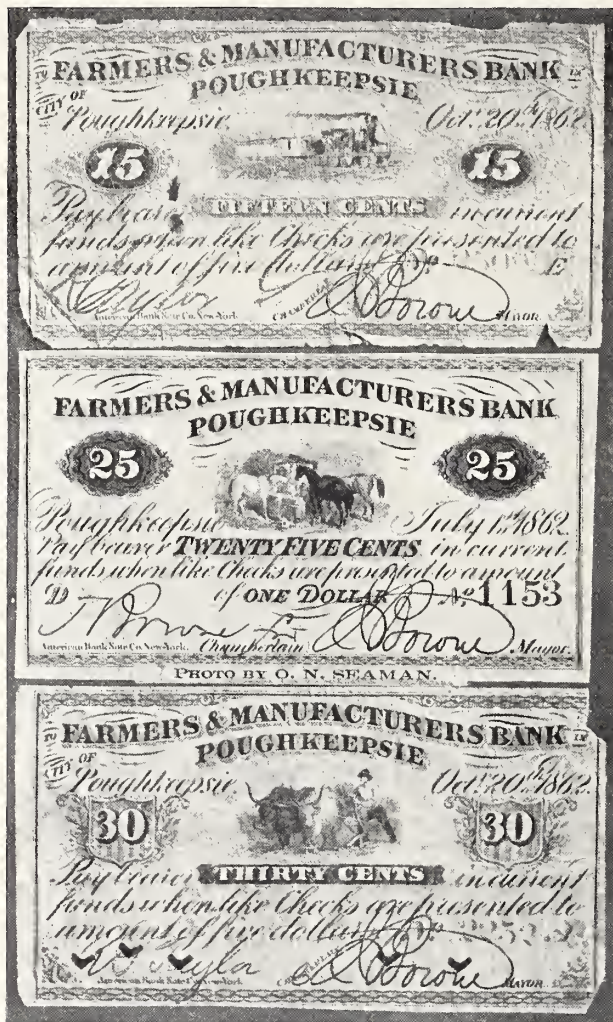 TO FARMERS & MANUFACTURERS BANK IN
CITY OF POUGHKEEPSIE
Poughkeepsie Oct. 20th 1862
15 15
Pay bearer FIFTEEN CENTS in current
funds when like Checks are presented to
amount of five dollars No E
American Bank Note Co. New-York. CHAMBERLAIN MAYOR.
FARMERS & MANUFACTURERS BANK
POUGHKEEPSIE
25 25
Poughkeepsie July 1st 1862.
Pay bearer TWENTY FIVE CENTS in current
funds when like Checks are presented to amount
D of ONE DOLLAR No 1153
American Bank Note Co. New-York. Chamberlain Mayor.
PHOTO BY O. N. SEAMAN.
TO FARMERS & MANUFACTURERS BANK IN
CITY OF POUGHKEEPSIE
Poughkeepsie. Oct. 20th 1862.
30 30
Pay bearer THIRTY CENTS in current
funds when like Checks are presented to
amount of five dollars No
American Bank Note Co. New-York. MAYOR